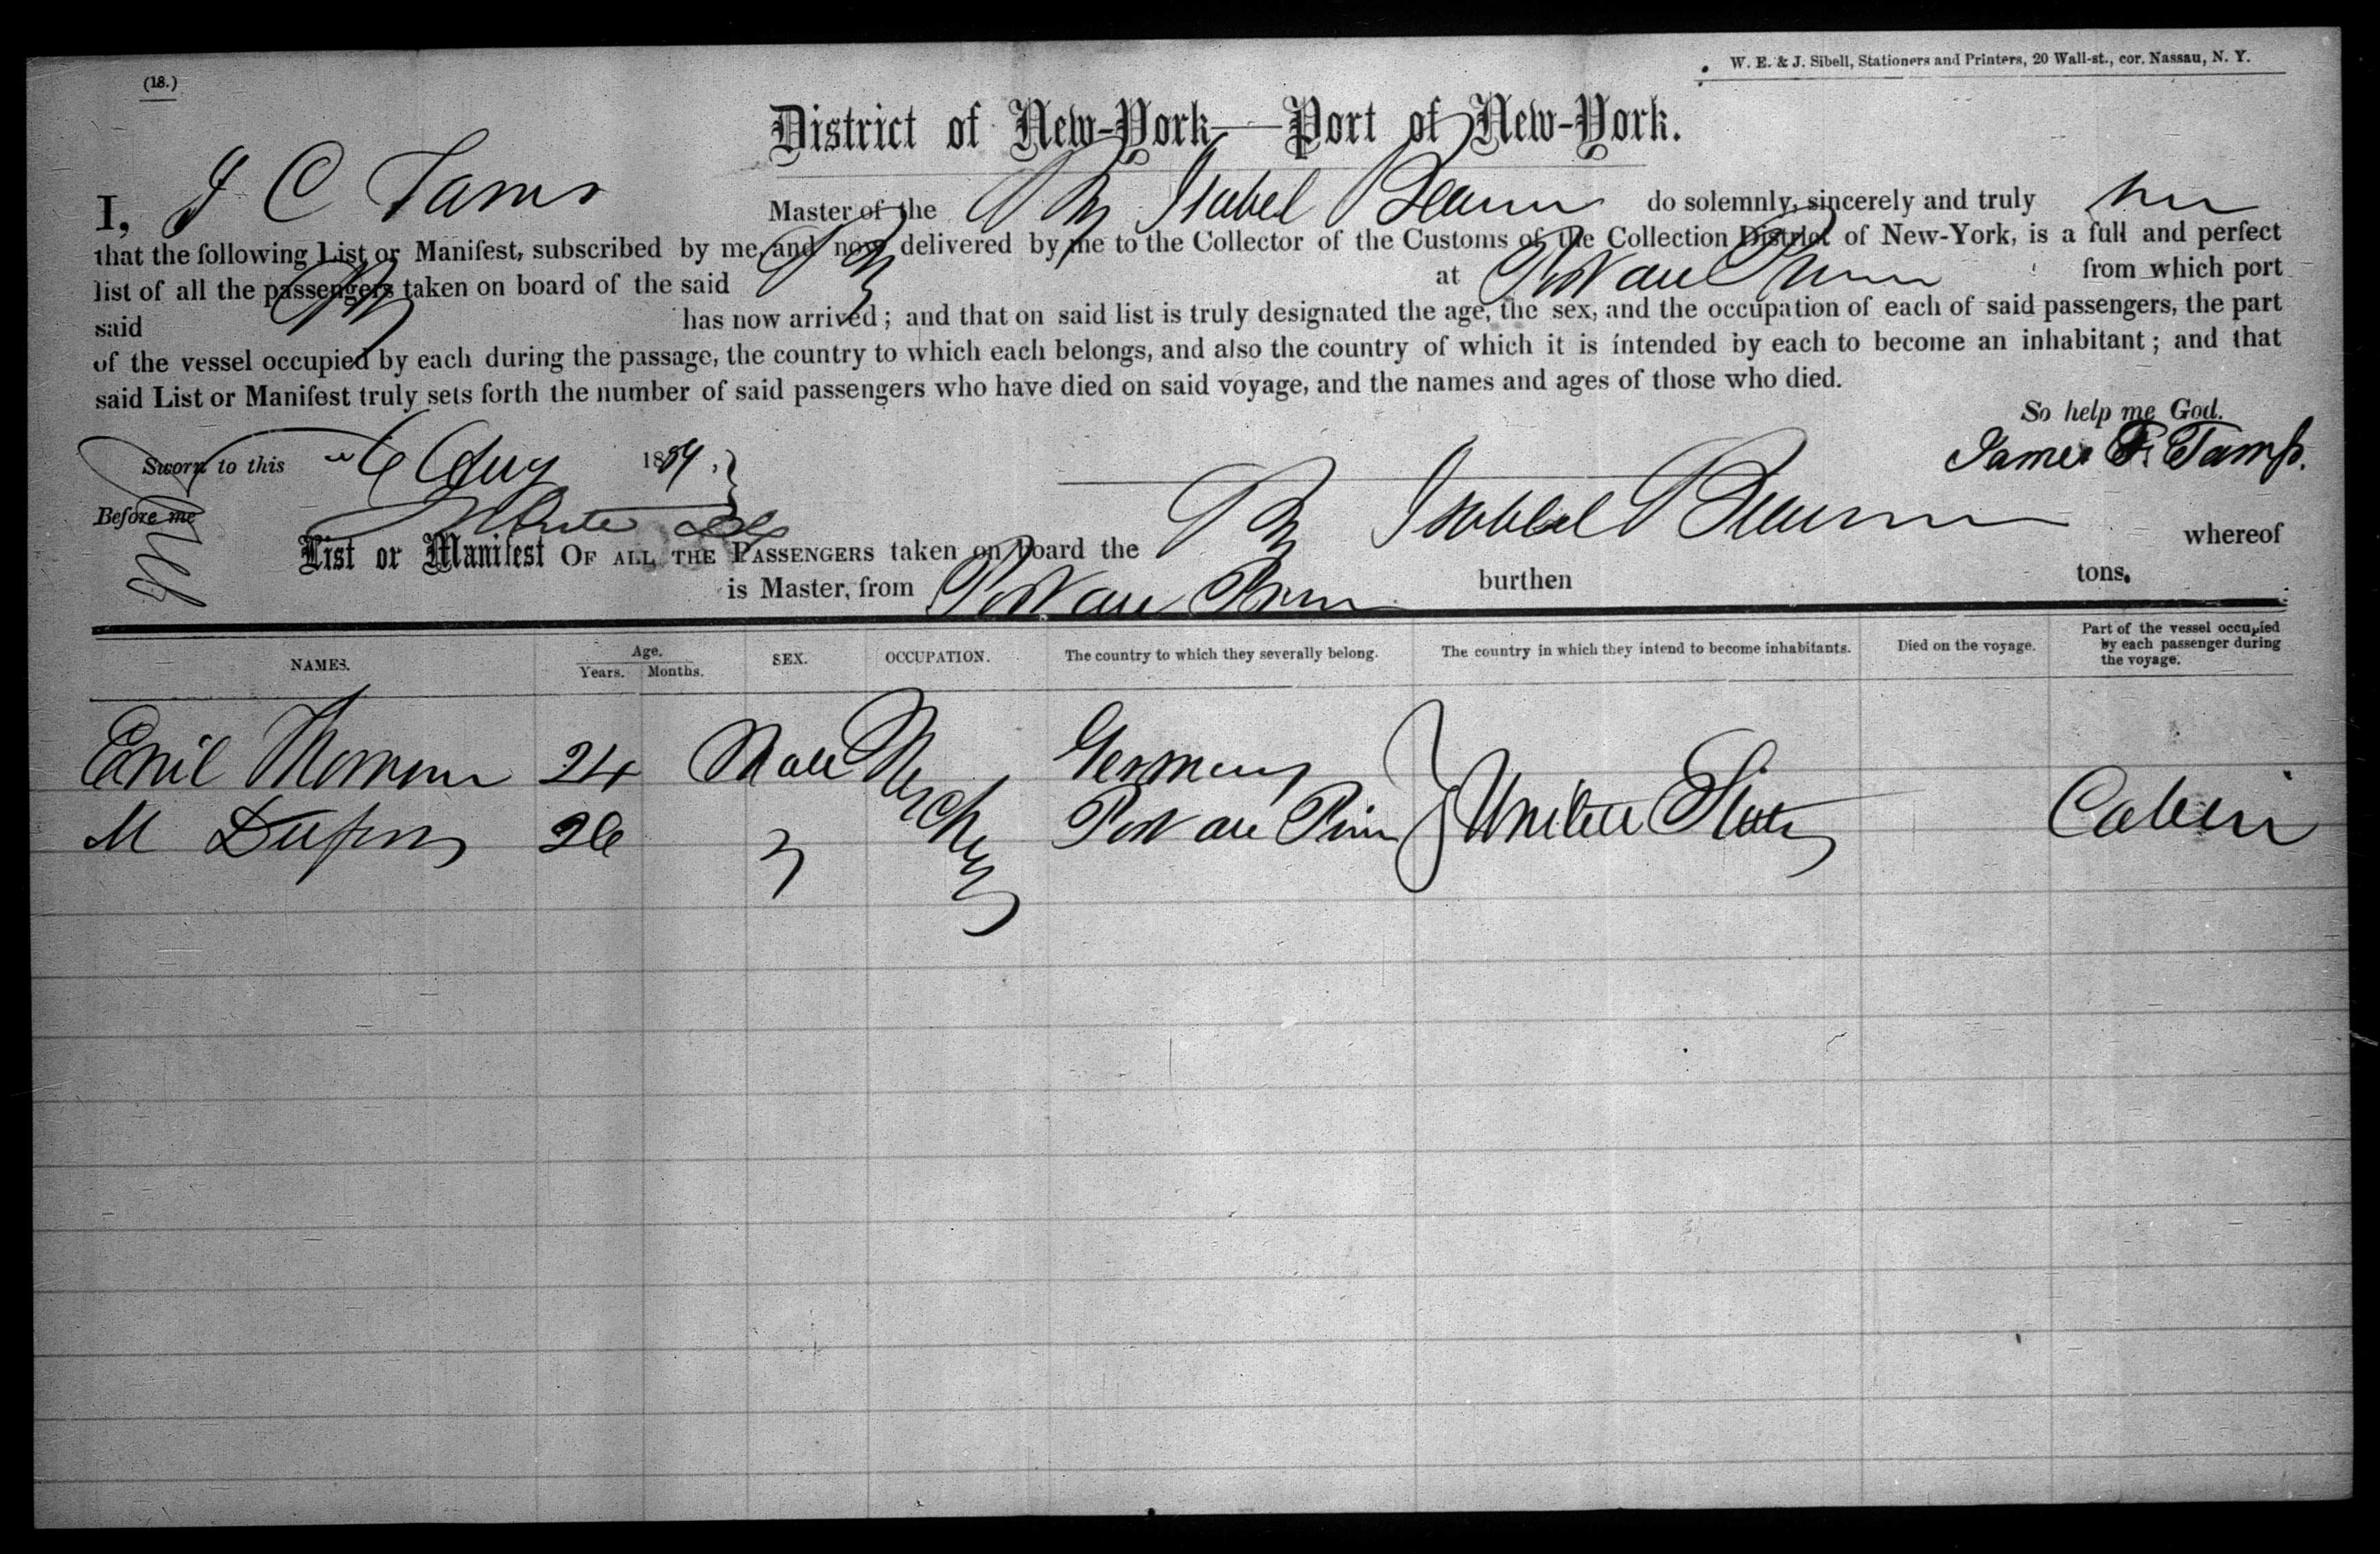 (18.)
W. E. & J. Sibell, Stationers and Printers, 20 Wall-st., cor. Nassau, N. Y.
District of New-York—Port of New-York.
I, J C Tams Master of the Isabel do solemnly, sincerely and truly
that the following List or Manifest, subscribed by me and now delivered by me to the Collector of the Customs of the Collection District of New-York, is a full and perfect
list of all the passengers taken on board of the said at Port au from which port
said has now arrived; and that on said list is truly designated the age, the sex, and the occupation of each of said passengers, the part
of the vessel occupied by each during the passage, the country to which each belongs, and also the country of which it is intended by each to become an inhabitant; and that
said List or Manifest truly sets forth the number of said passengers who have died on said voyage, and the names and ages of those who died.
So help me God.
Sworn to this 6 Aug 1859. James
Before me
List or Manifest OF ALL THE PASSENGERS taken on board the Isabel whereof
is Master, from Port au Prin burthen tons.
NAMES. Age. Years. Months. SEX. OCCUPATION. The country to which they severally belong. The country in which they intend to become inhabitants. Died on the voyage. Part of the vessel occupied by each passenger during the voyage.
Emil 24 Male Germany
M 26 Port au Prin United States Cabin